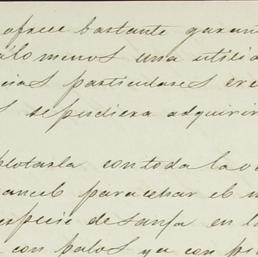 ofrece bastante garan
alo menos una utilid
cias particulares cre
s se pudiera adquirir
plotarla con toda la v
ancel para cesar el m
especie de sanja en l
con palos ya con pi